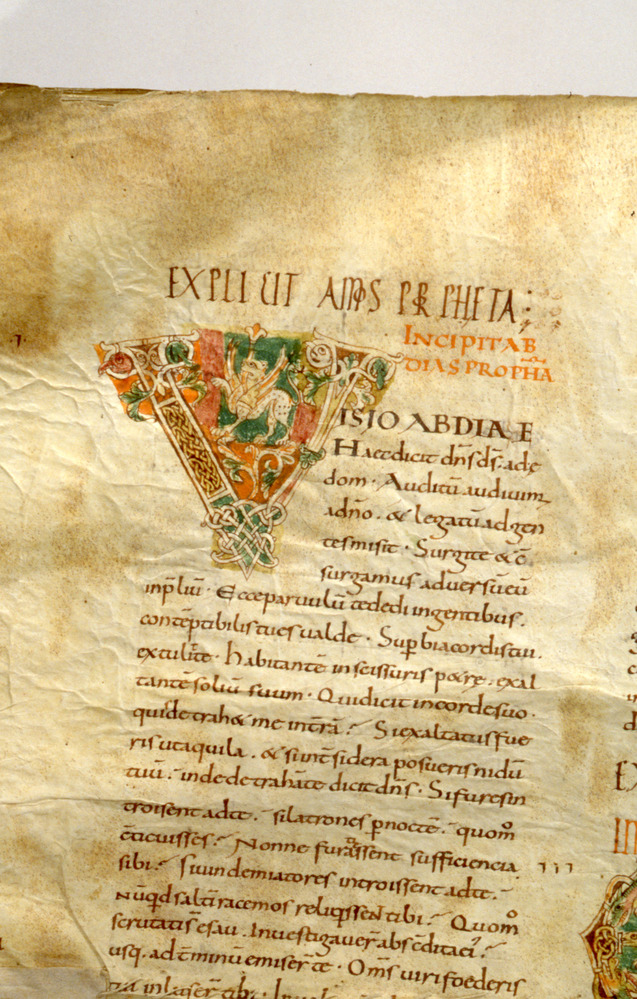 EXPLICIT AMOS PRPHETA
INCIPIT AB
DIAS PROPHA
ISIO ABDIAE
Haec dicit dn̄s ds̄ adę
dom· Auditū audivim
adn̄o· & legatū adgen
tes misit· Surgite & c̄
surgamus adversū eū
inp̄liū· Ecce parvulū te dedi in gentibus·
contēptibilis tu es valde· Supbia cordis tui·
extulit te· habitantē in scissuris p&rę· exal
tantē soliū suum· Qui dicit in corde suo·
quis detrah& me in trā? Si exaltatus fue
ris ut aquila· & si int̄ sidera posueris nidū
tuū· inde detrahā te dicit dn̄s· Si fures in
troissent ad te· si latrones p nocte· quom̊
cticuisses? Nonne furassent sufficiencia
sibi? Si vindemiatores introissent ad te·
nūqd saltī racemos reliqssent tibi? Quom̊
scrutati s̄ esau· Investigaver̄ abscdita ei?
usq· ad t̄minū emiser̄ te· Om̄s viri foederis